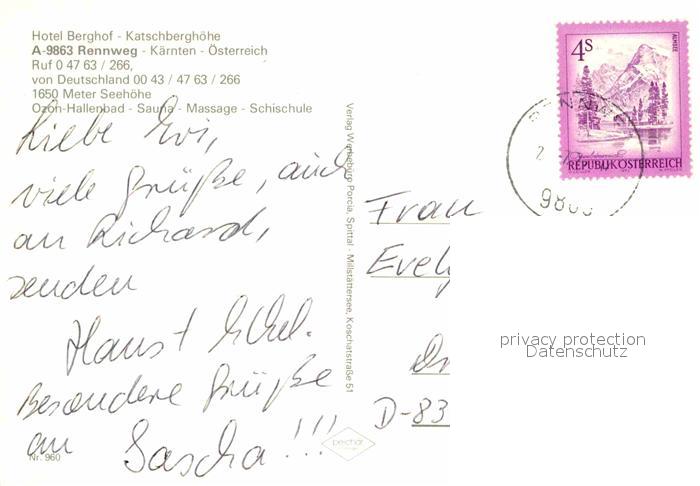 Hotel Berghof - Katschberghöhe
A-9863 Rennweg - Kärnten - Österreich
Ruf 0 47 63 / 266,
von Deutschland 00 43 / 47 63 / 266
1650 Meter Seehöhe
Ozon-Hallenbad - Sauna - Massage - Schischule
Liebe Evi,
viele Grüße, auch
an Richard,
senden
Hans +
Besondere Grüße
an Sascha!!!
Nr. 960
Verlag Wertsburg Porcia, Spittal - Millstättersee, Koschatstraße 51
4S
ALMSEE
REPUBLIK ÖSTERREICH
RENNWEG
Frau
Evely
D-83
privacy protection
Datenschutz